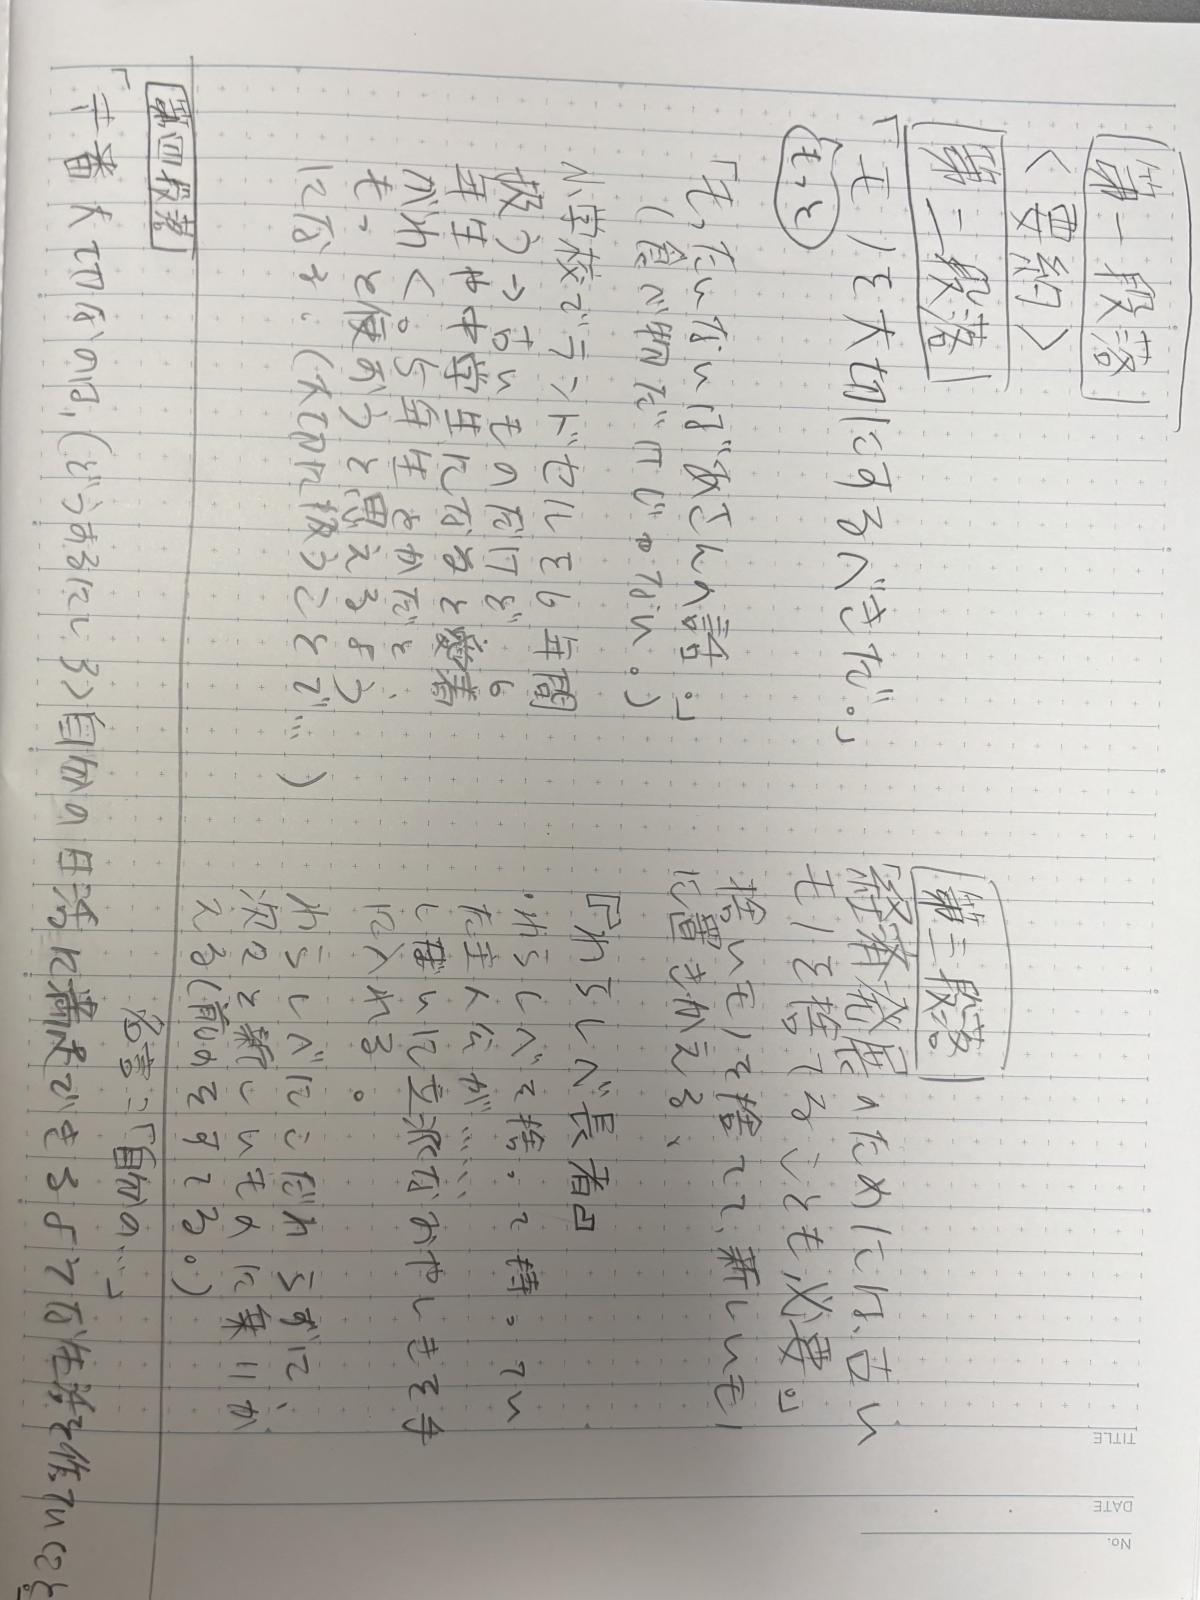 第一段落
<要約>
第二段落
「モノを大切にするべきだ。」
もっと
「もったいないばあさん諸:」
(食べ物だけじゃない。)
小学校でランドセルを6年間
扱う→古いものだけど、6
年生や中学生になると愛着
がわく。5年生とかだと、
もっと使おうと思えるよう
になる。(大切に扱うことで…)
第三段落
「経済発展のためには、古い
モノを捨てることも必要。」
捨いモノを捨てて、新しいモノ
に置きかえる、
『わらしべ長者』
・わらしべを捨って持ってい
た主人公が……、
しまいに立派なおやしきを手
に入れる。
わらしべにこだわらずに、
次々と新しいものに乗りか
える(前のをすてる。)
第四段落
名言:「自分の…」
「一番大切なのは、(どうするにしろ)自分の日活に満足できるような生活を作ていくこと
TITLE
DATE
No.